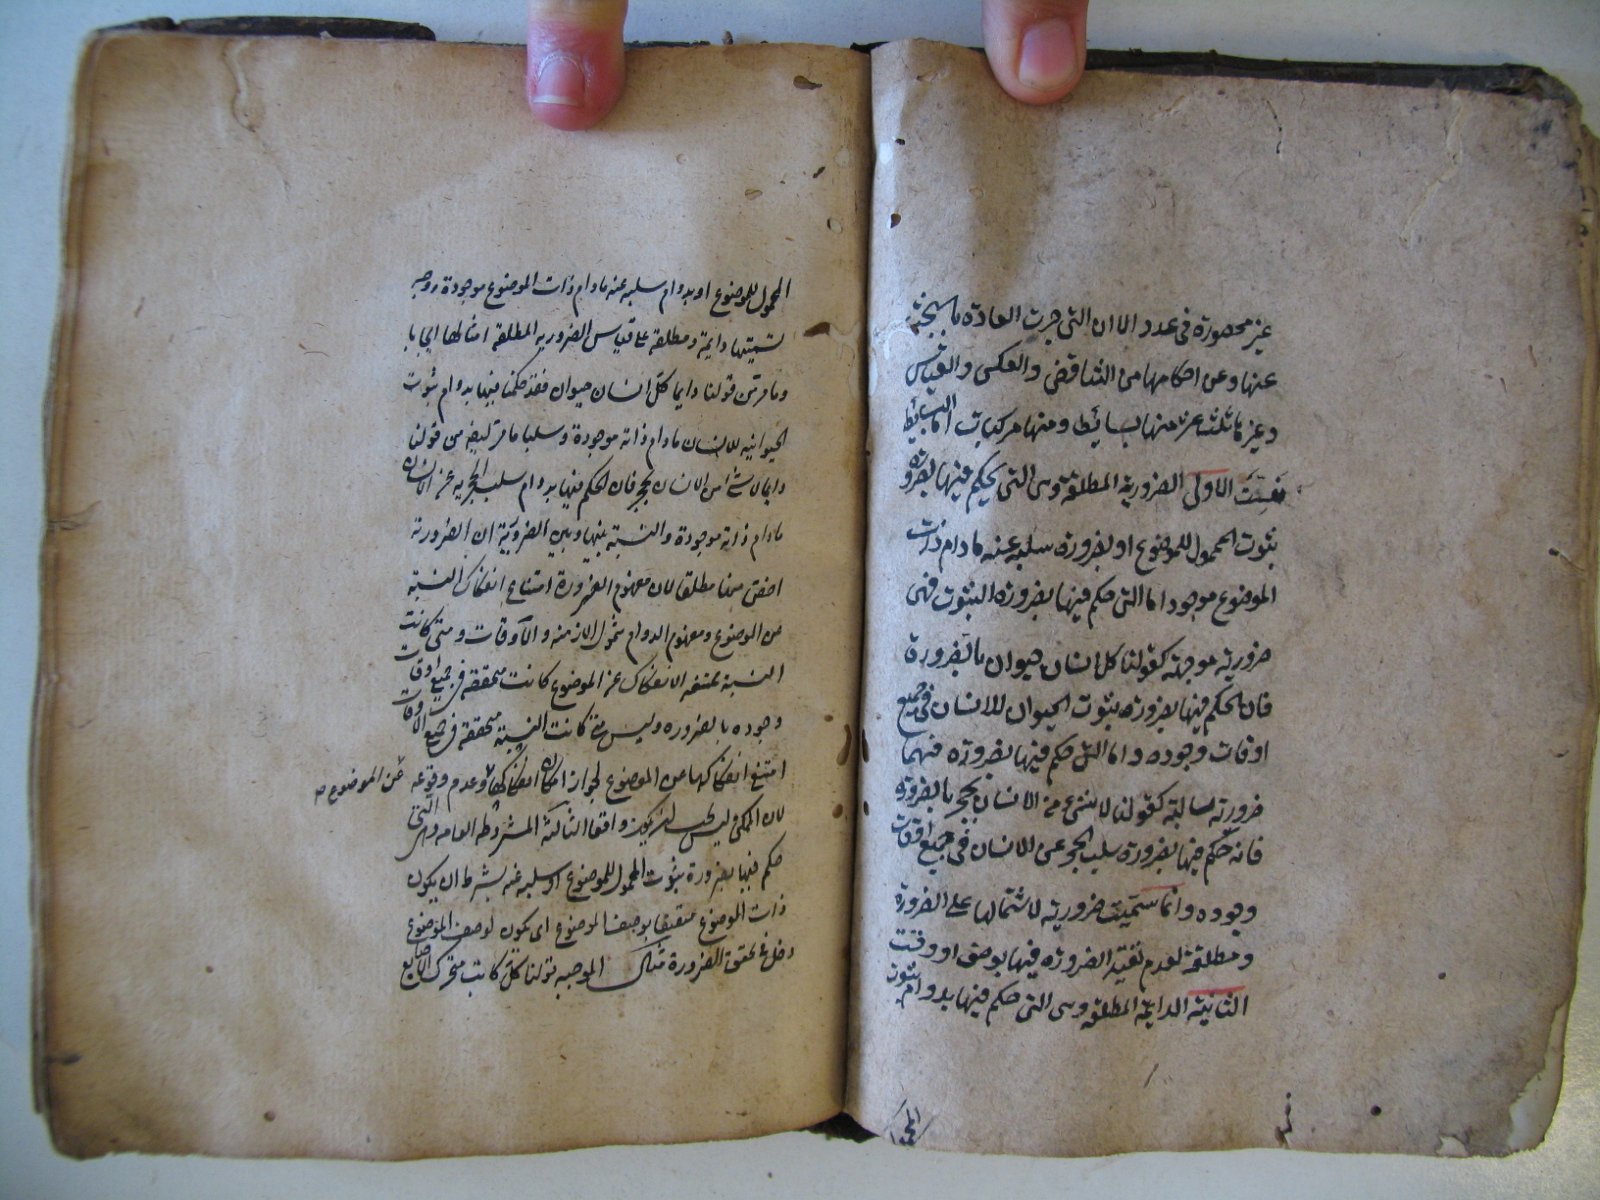 غير محصورة فى عدد الا ان التى جرت العادة بالبحث
عنها وعن احكامها من التناقض والعكس والقياس
وغيرها ثلثة عشر منها بسائط ومنها مركبات اما البسائط
فست الاولى الضرورية المطلقة وهى التى يحكم فيها بضرورة
ثبوت المحمول للموضوع او بضرورة سلبه عنه ما دام ذات
الموضوع موجودا اما التى حكم فيها بضرورة الثبوت فهى
ضرورية موجبة كقولنا كل انسان حيوان بالضرورة
فان الحكم فيها بضرورة ثبوت الحيوان للانسان فى جميع
اوقات وجوده واما التى حكم فيها بضرورة
ضرورية سالبة كقولنا لا شىء من الانسان بحجر بالضرورة
فانه حكم فيها بضرورة سلب الحجر عن الانسان فى جميع اوقات
وجوده وانما سميت ضرورية لاشتمالها على الضرورة
ومطلقة لعدم تقييد الضرورة فيها بوصف او وقت
الثانية الدايمة المطلقة وهى التى حكم فيها بدوام ثبوت
المحمول
المحمول للموضوع او بدوام سلبه عنه ما دام ذات الموضوع موجودة ووجه
تسميتها دايمة ومطلقة على قياس الضرورية المطلقة امثالها ايجابا
وما مر من قولنا دايما كل انسان حيوان فقد حكمنا فيها بدوام ثبوت
الحيوانية للانسان ما دام ذاته موجودة وسلبا ما مر ايضا من قولنا
دايما لا شىء من الانسان بحجر فان الحكم فيها بدوام سلب الحجرية عن الانسان
ما دام ذاته موجودة والنسبة بينها وبين الضرورية ان الضرورية
اخص منها مطلقا لان مفهوم الضرورة امتناع انفكاك النسبة
عن الموضوع ومفهوم الدوام شمول الازمنة والاوقات ومتى كانت
النسبة ممتنعة الانفكاك عن الموضوع كانت متحققة فى جميع اوقات
وجوده بالضرورة وليس متى كانت النسبة متحققة فى جميع الاوقات
امتنع انفكاكها عن الموضوع لجواز امكان انفكاكها وعدم وقوعه
عن الموضوع صح
لان الممكن ليس يجب ان يكون واقعا الثالثة المشروطة العامة وهى التى
حكم فيها بضرورة ثبوت المحمول للموضوع او سلبه عنه بشرط ان يكون
ذات الموضوع متصفا بوصف الموضوع اى يكون لوصف الموضوع
دخل فى تحقق الضرورة مثال الموجبة قولنا كل كاتب متحرك الاصابع